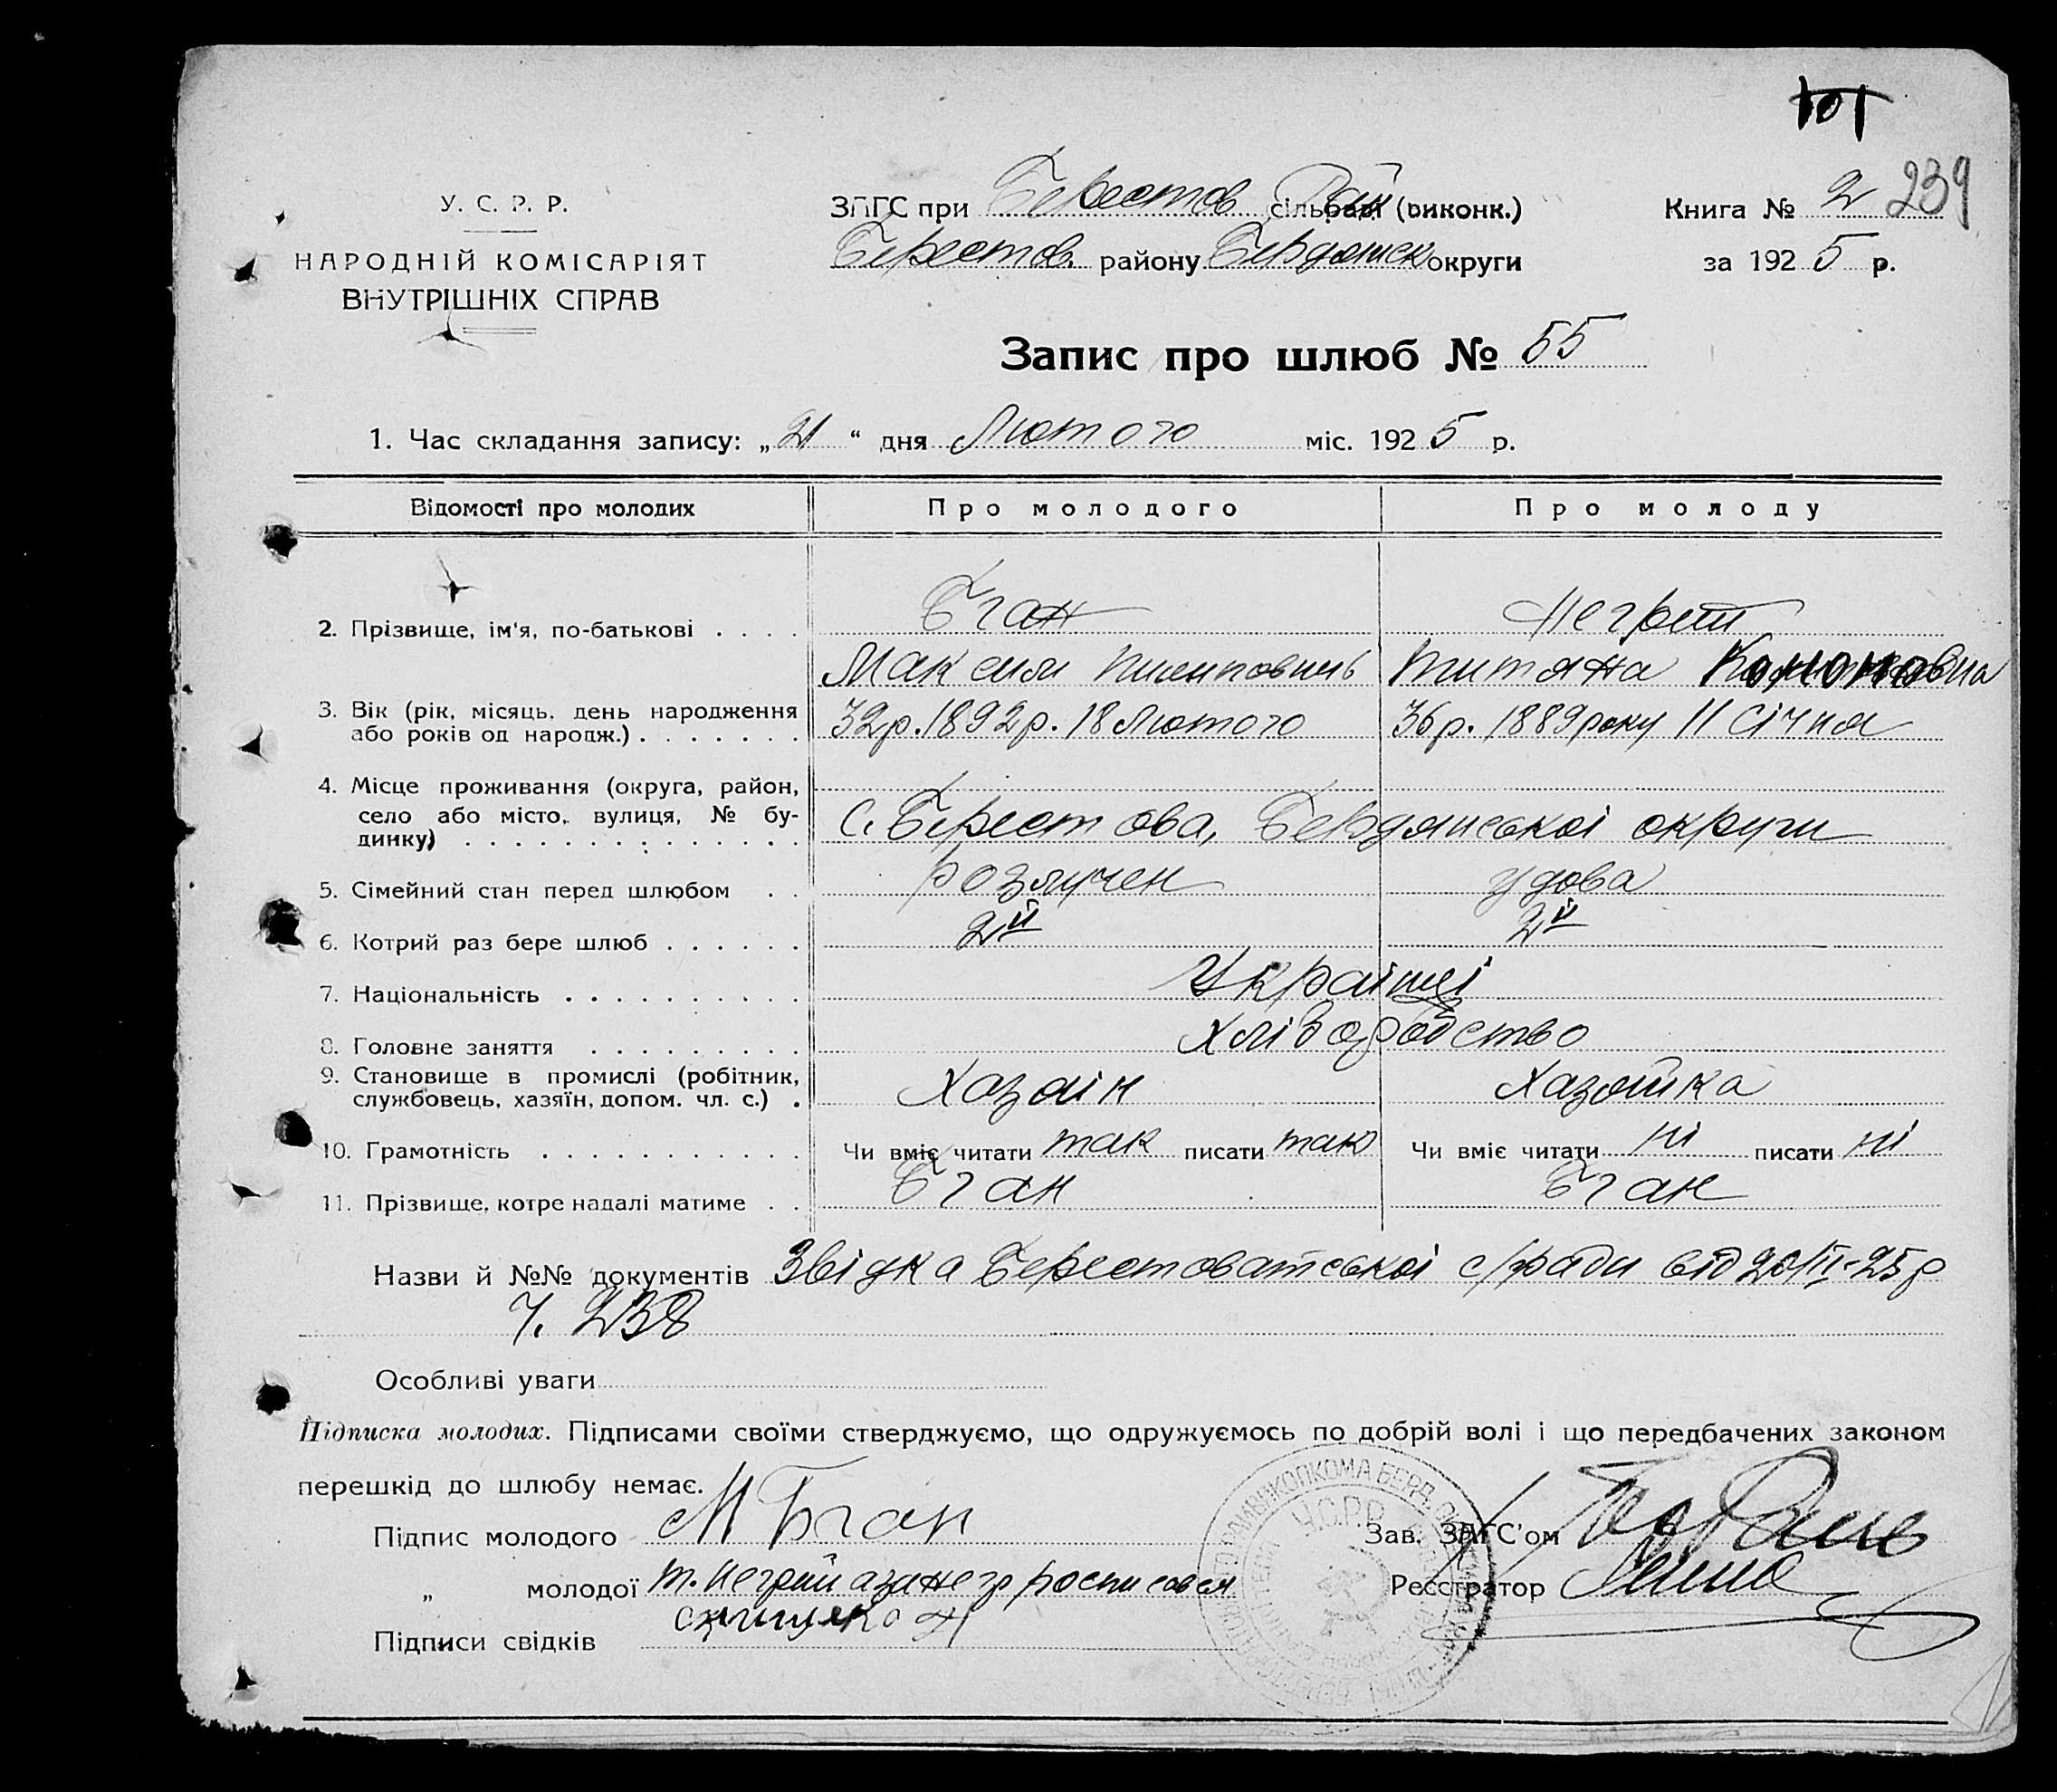 101
У. С. Р. Р.
НАРОДНІЙ КОМІСАРІЯТ
ВНУТРІШНІХ СПРАВ
ЗАГС при Берестов сільраді Рай (виконк.)
Книга № 2 239
Берестов. району Бердянськ округи
за 1925 р.
Запис про шлюб № 55
1. Час складання запису: „21“ дня Лютого міс. 1925 р.
Відомості про молодих Про молодого Про молоду
2. Прізвище, ім'я, по-батькові . . . . Бган Негрей
Максим Пилипович Титяна Кононовна
3. Вік (рік, місяць, день народження
або років од народж.) . . . . . . . 32р. 1892р. 18 Лютого 36р. 1889 року 11 Січня
4. Місце проживання (округа, район,
село або місто, вулиця, № бу-
динку) . . . . . . . . . . . . . . С. Берестова, Бердянської округи
5. Сімейний стан перед шлюбом . . розлучен удова
6. Котрий раз бере шлюб . . . . . . 2й 2й
7. Національність . . . . . . . . . . Українці
8. Головне заняття . . . . . . . . . Хліборобство
9. Становище в промислі (робітник,
службовець, хазяїн, допом. чл. с.) . Хазяін Хазяйка
10. Грамотність . . . . . . . . . . . Чи вміє читати так писати так Чи вміє читати ні писати ні
11. Прізвище, котре надалі матиме . . Бган Бган
Назви й №№ документів Звідка Берестоватської с/ради від 20/II-25р
Ч. 238
Особливі уваги
Підписка молодих. Підписами своїми стверджуємо, що одружуємось по добрій волі і що передбачених законом
перешкід до шлюбу немає.
Підпис молодого М Бган
Зав. ЗАГС'ом
„ молодої Т. Негрей а за негр росписався
Реєстратор
Підписи свідків
У.С.Р.Р.